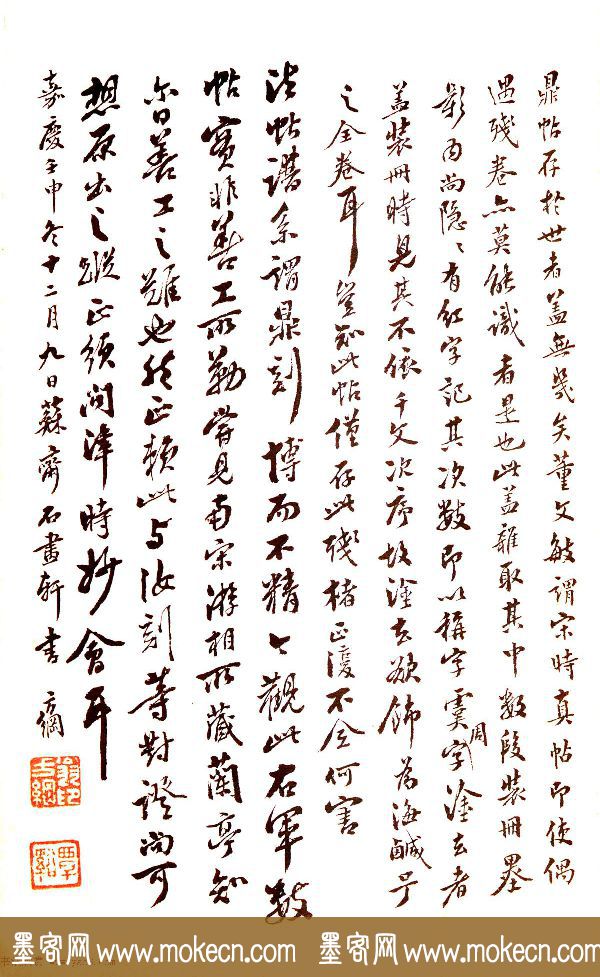 鼎帖存於世者蓋無幾矣董文敏謂宋時真帖即使偶
遇殘卷亦莫能識者是也此蓋雜取其中數段裝冊墨
影內尚隱〻有紅字記其次數即以稱字虞字周塗去者
蓋裝冊時見其不依千文次序故塗去欲飾為海鹹
之全卷耳豈知此帖僅存此殘楮正復不全何害
法帖譜系謂鼎刻博而不精今觀此右軍數
帖實非善工所勒嘗見南宋游相所藏蘭亭知
尔日善工之難也然正賴此与汝刻等對證尚可
想原出之蹤正須問津時妙會耳
嘉慶壬申冬十二月九日蘇齋石畫軒書 方綱
翁印方綱
覃谿
墨客网 www.mokecn.com 墨客网 www.mokecn.com